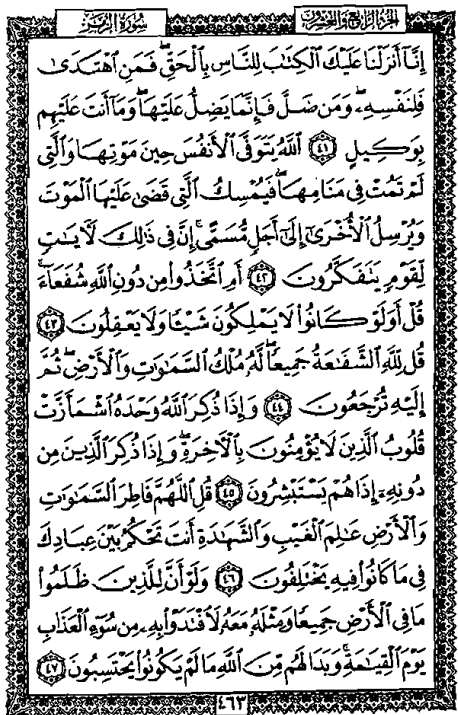 الجزء الرابع والعشرون
سورة الزمر
إِنَّا أَنزَلْنَا عَلَيْكَ الْكِتَٰبَ لِلنَّاسِ بِالْحَقِّ ۖ فَمَنِ اهْتَدَىٰ
فَلِنَفْسِهِۦ ۖ وَمَن ضَلَّ فَإِنَّمَا يَضِلُّ عَلَيْهَا ۖ وَمَا أَنتَ عَلَيْهِم
بِوَكِيلٍ ٤١ اللَّهُ يَتَوَفَّى الْأَنفُسَ حِينَ مَوْتِهَا وَالَّتِي
لَمْ تَمُتْ فِي مَنَامِهَا ۖ فَيُمْسِكُ الَّتِي قَضَىٰ عَلَيْهَا الْمَوْتَ
وَيُرْسِلُ الْأُخْرَىٰ إِلَىٰ أَجَلٍ مُّسَمًّى ۚ إِنَّ فِي ذَٰلِكَ لَآيَٰتٍ
لِّقَوْمٍ يَتَفَكَّرُونَ ٤٢ أَمِ اتَّخَذُوا مِن دُونِ اللَّهِ شُفَعَاءَ ۚ
قُلْ أَوَلَوْ كَانُوا لَا يَمْلِكُونَ شَيْئًا وَلَا يَعْقِلُونَ ٤٣
قُل لِّلَّهِ الشَّفَٰعَةُ جَمِيعًا ۖ لَّهُۥ مُلْكُ السَّمَٰوَٰتِ وَالْأَرْضِ ۖ ثُمَّ
إِلَيْهِ تُرْجَعُونَ ٤٤ وَإِذَا ذُكِرَ اللَّهُ وَحْدَهُ اشْمَأَزَّتْ
قُلُوبُ الَّذِينَ لَا يُؤْمِنُونَ بِالْآخِرَةِ ۖ وَإِذَا ذُكِرَ الَّذِينَ مِن
دُونِهِۦ إِذَا هُمْ يَسْتَبْشِرُونَ ٤٥ قُلِ اللَّهُمَّ فَاطِرَ السَّمَٰوَٰتِ
وَالْأَرْضِ عَٰلِمَ الْغَيْبِ وَالشَّهَٰدَةِ أَنتَ تَحْكُمُ بَيْنَ عِبَادِكَ
فِي مَا كَانُوا فِيهِ يَخْتَلِفُونَ ٤٦ وَلَوْ أَنَّ لِلَّذِينَ ظَلَمُوا
مَا فِي الْأَرْضِ جَمِيعًا وَمِثْلَهُۥ مَعَهُۥ لَافْتَدَوْا بِهِۦ مِن سُوءِ الْعَذَابِ
يَوْمَ الْقِيَٰمَةِ ۚ وَبَدَا لَهُم مِّنَ اللَّهِ مَا لَمْ يَكُونُوا يَحْتَسِبُونَ ٤٧
٤٦٣